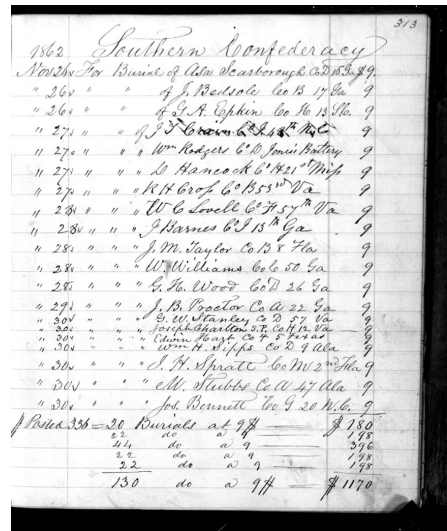 313
1862 Southern Confederacy
Nov 26 For Burial of Asa Scarborough Co D 15 Ga $9.
" 26 " " of J. Bedsole Co B 17 Ga 9
" 26 " " of G. A. Epkin Co 13 9
" 27 " " of J 48th N.C 9
" 27 " " " Wm Rodgers Co D Jones Battery 9
" 27 " " " D Hancock Co H 21st Miss 9
" 27 " " " R H Crop Co B 53rd Va 9
" 28 " " " W C Lovell Co F 57th Va 9
" 28 " " " J Barnes Co I 13th Ga 9
" 28 " " " J. M. Taylor Co B 8 Fla 9
" 28 " " " W. Williams Co C 50 Ga 9
" 28 " " " G. H. Wood Co B 26 Ga 9
" 29 " " " J. B. Proctor Co A 22 Ga 9
" 30 " " " G. W. Stanley Co D 57 Va 9
" 30 " " " Joseph Charlton Co H 12 Va 9
" 30 " " " Edwin Hart Co F 5 Texas 9
" 30 " " " Wm H. Sipps Co D 9 Ala 9
" 30 " " " J. H. Spratt Co M 2nd Fla 9
" 30 " " " M. Stubbs Co A 47 Ala 9
" 30 " " " Jos. Bennett Co G 20 N.C. 9
Posted 336 = 20 Burials at 9$ — $180
22 do a 9 — 198
44 do a 9 — 396
22 do a 9 — 198
22 do a 9 — 198
130 do a 9$ — $1170